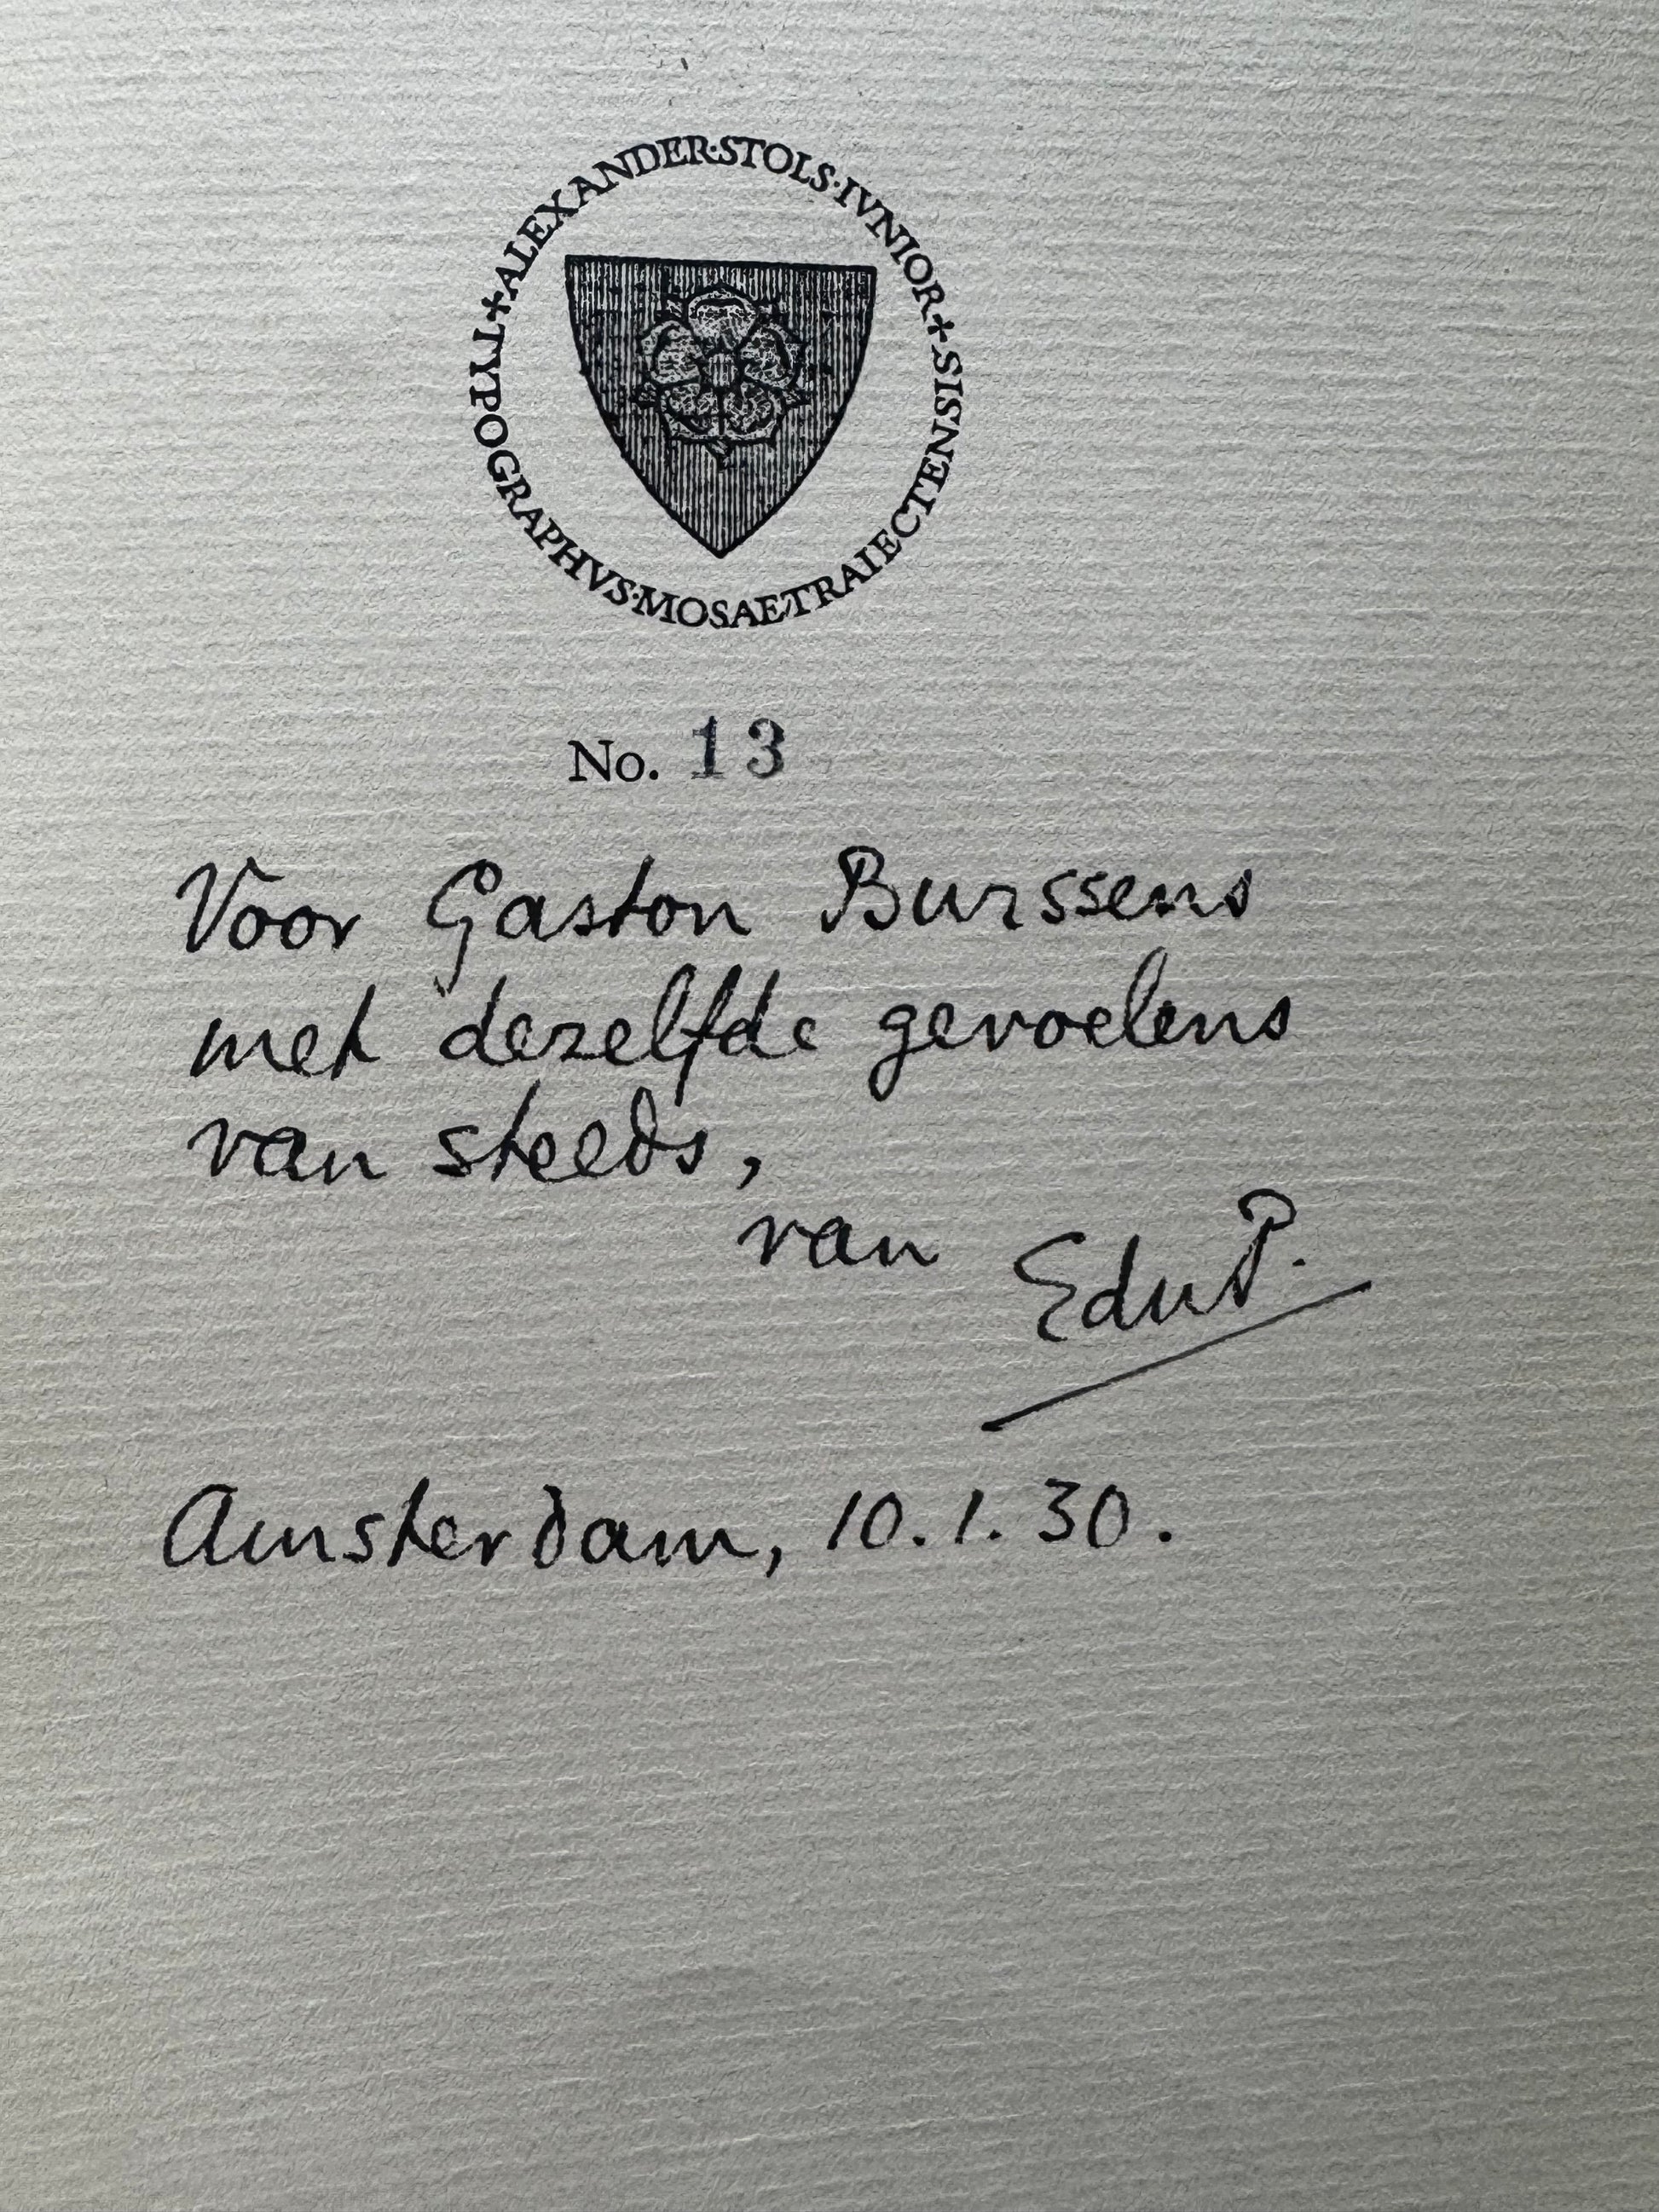 +ALEXANDER·STOLS·IVNIOR+
TYPOGRAPHVS·MOSAETRAIECTENSIS
No. 13
Voor Gaston Burssens
met dezelfde gevoelens
van steeds,
van EduP.
Amsterdam, 10.1.30.